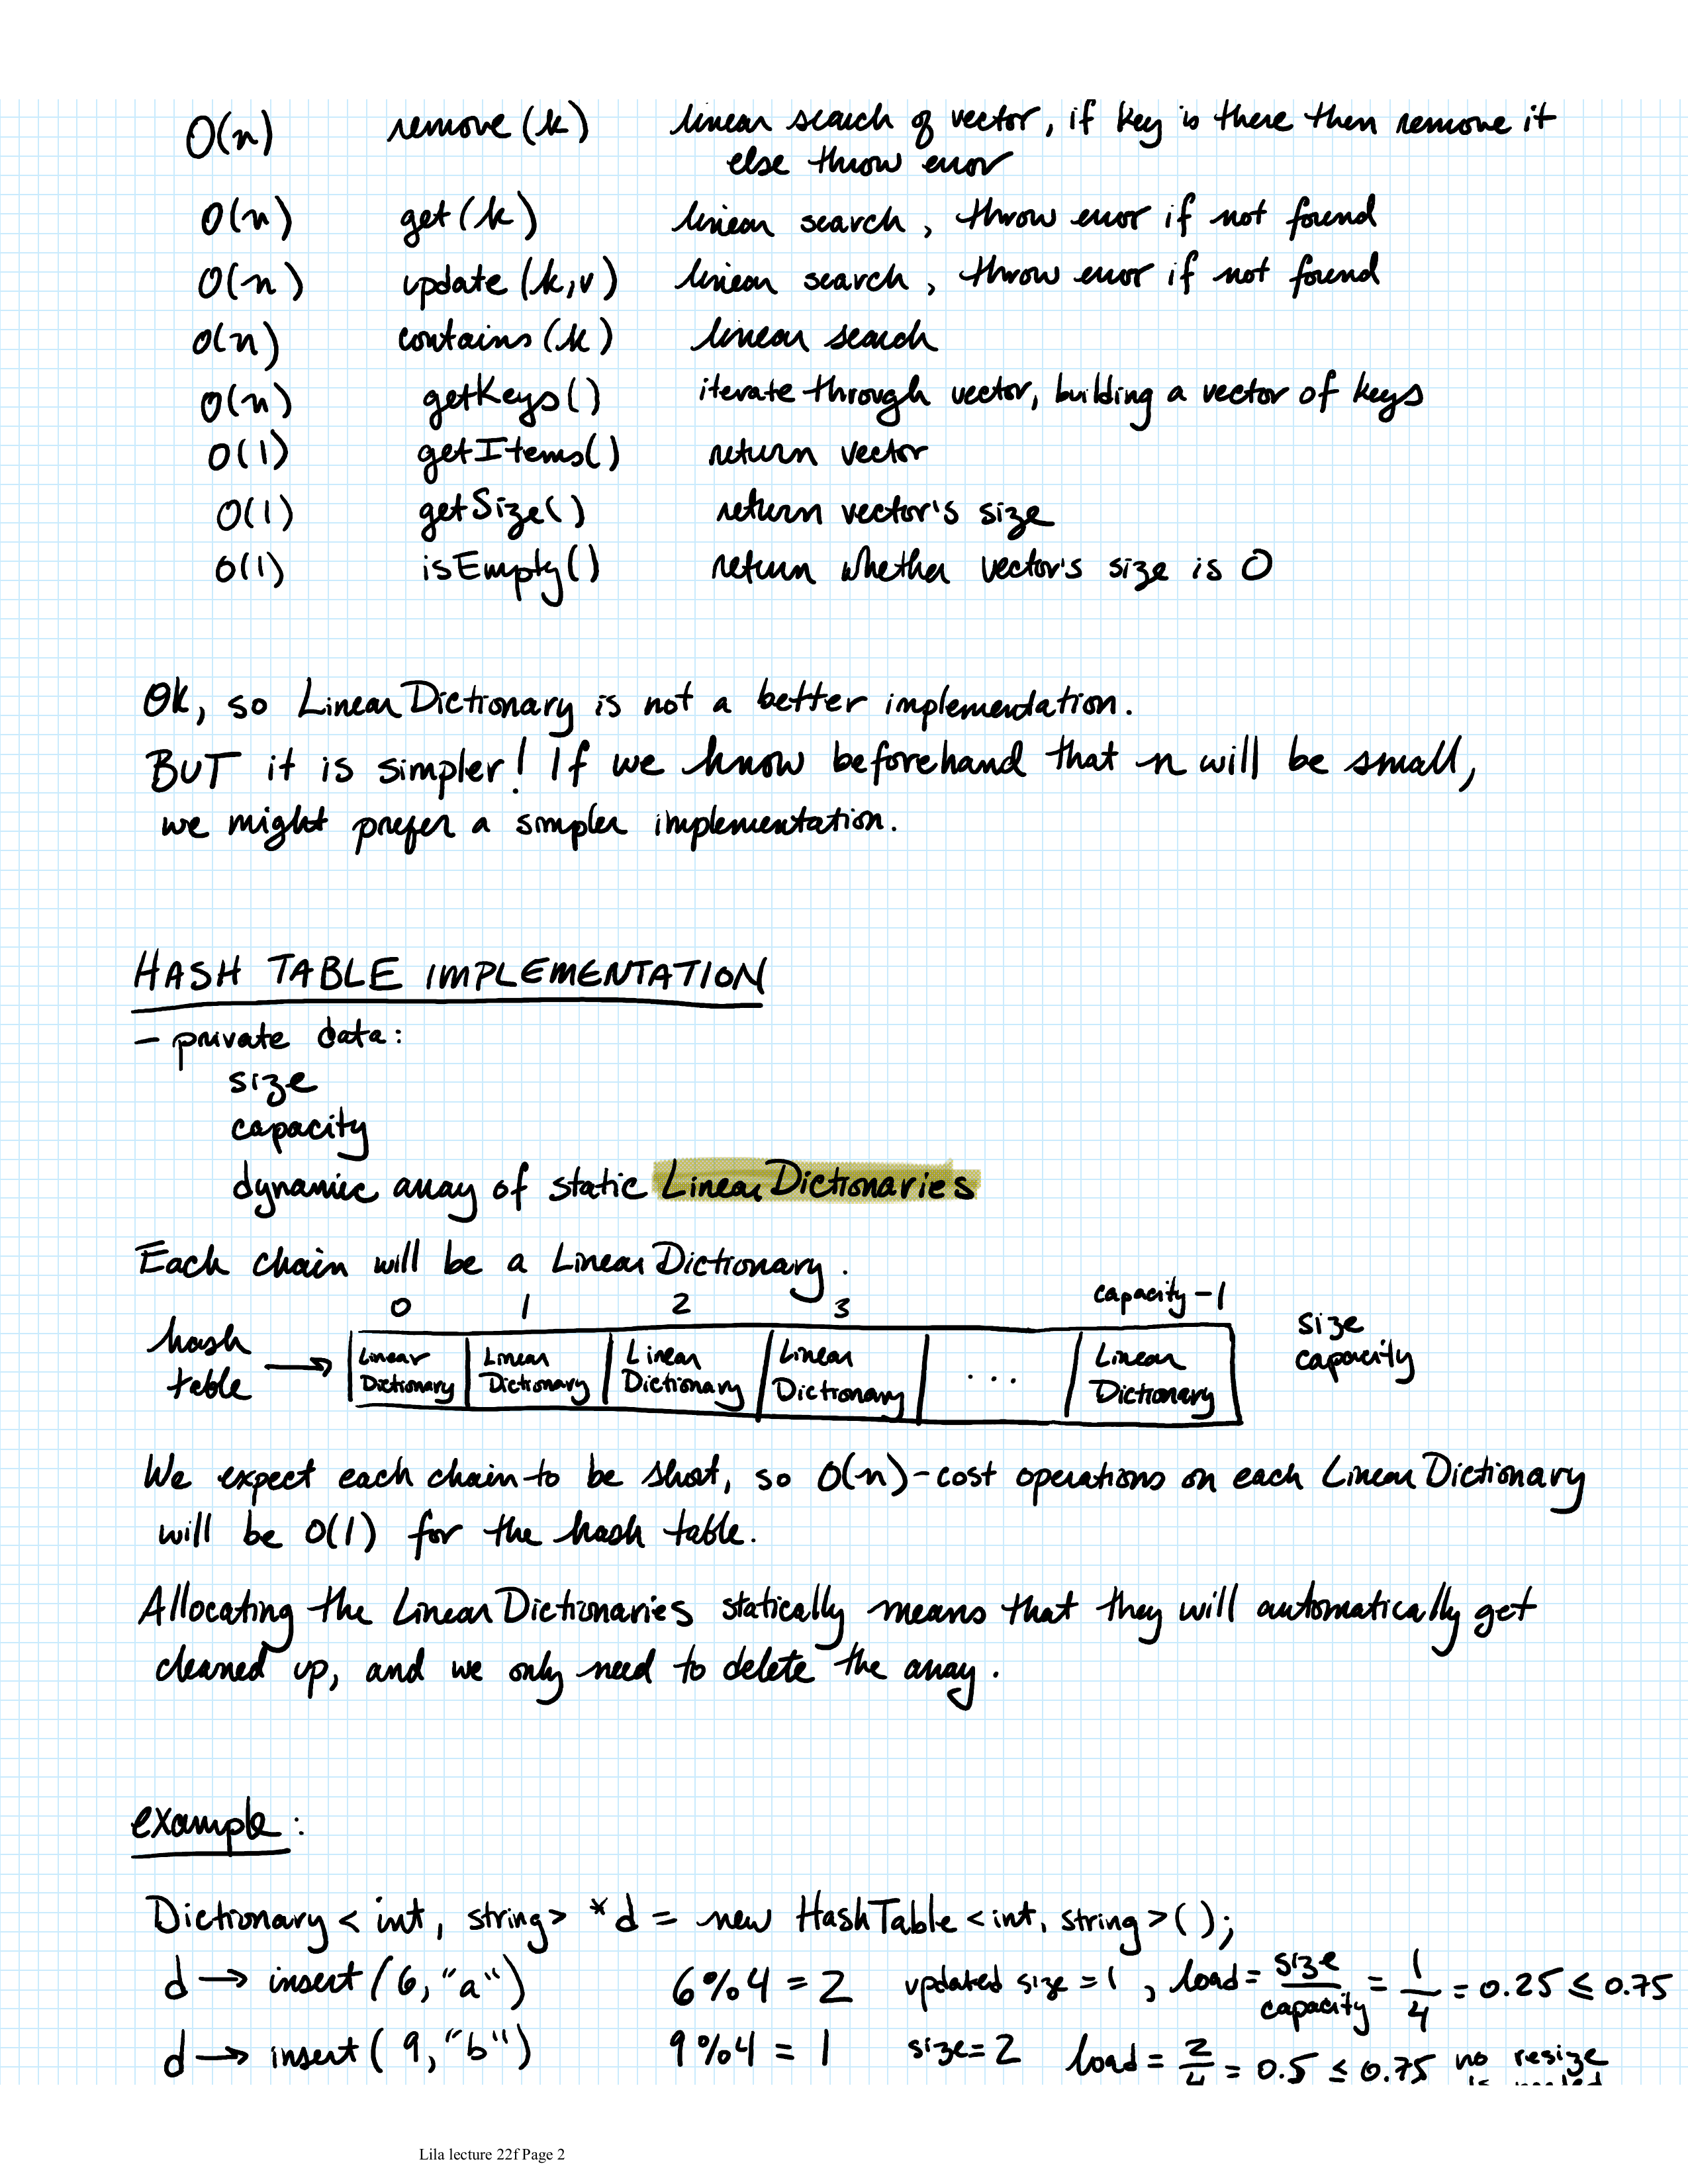 O(n) remove(k) linear search of vector, if key is there then remove it
else throw error
O(n) get(k) linear search, throw error if not found
O(n) update(k,v) linear search, throw error if not found
O(n) contains(k) linear search
O(n) getKeys() iterate through vector, building a vector of keys
O(1) getItems() return vector
O(1) getSize() return vector's size
O(1) isEmpty() return whether vector's size is 0
Ok, so LinearDictionary is not a better implementation.
BUT it is simpler! If we know beforehand that n will be small,
we might prefer a simpler implementation.
HASH TABLE IMPLEMENTATION
- private data:
size
capacity
dynamic array of static LinearDictionaries
Each chain will be a LinearDictionary.
0 1 2 3 capacity-1
hash table → Linear Dictionary Linear Dictionary Linear Dictionary Linear Dictionary ... Linear Dictionary
size
capacity
We expect each chain to be short, so O(n)-cost operations on each LinearDictionary
will be O(1) for the hash table.
Allocating the LinearDictionaries statically means that they will automatically get
cleaned up, and we only need to delete the array.
example:
Dictionary<int, string> *d = new HashTable<int, string>();
d → insert(6,"a") 6%4 = 2 updated size = 1, load = size/capacity = 1/4 = 0.25 ≤ 0.75
d → insert(9,"b") 9%4 = 1 size = 2 load = 2/4 = 0.5 ≤ 0.75 no resize
Lila lecture 22f Page 2